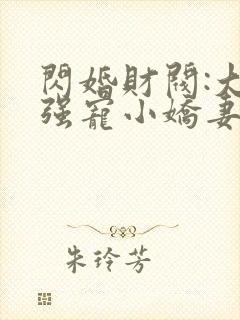 閃婚財閥:大
强寵小嬌妻
朱玲芳